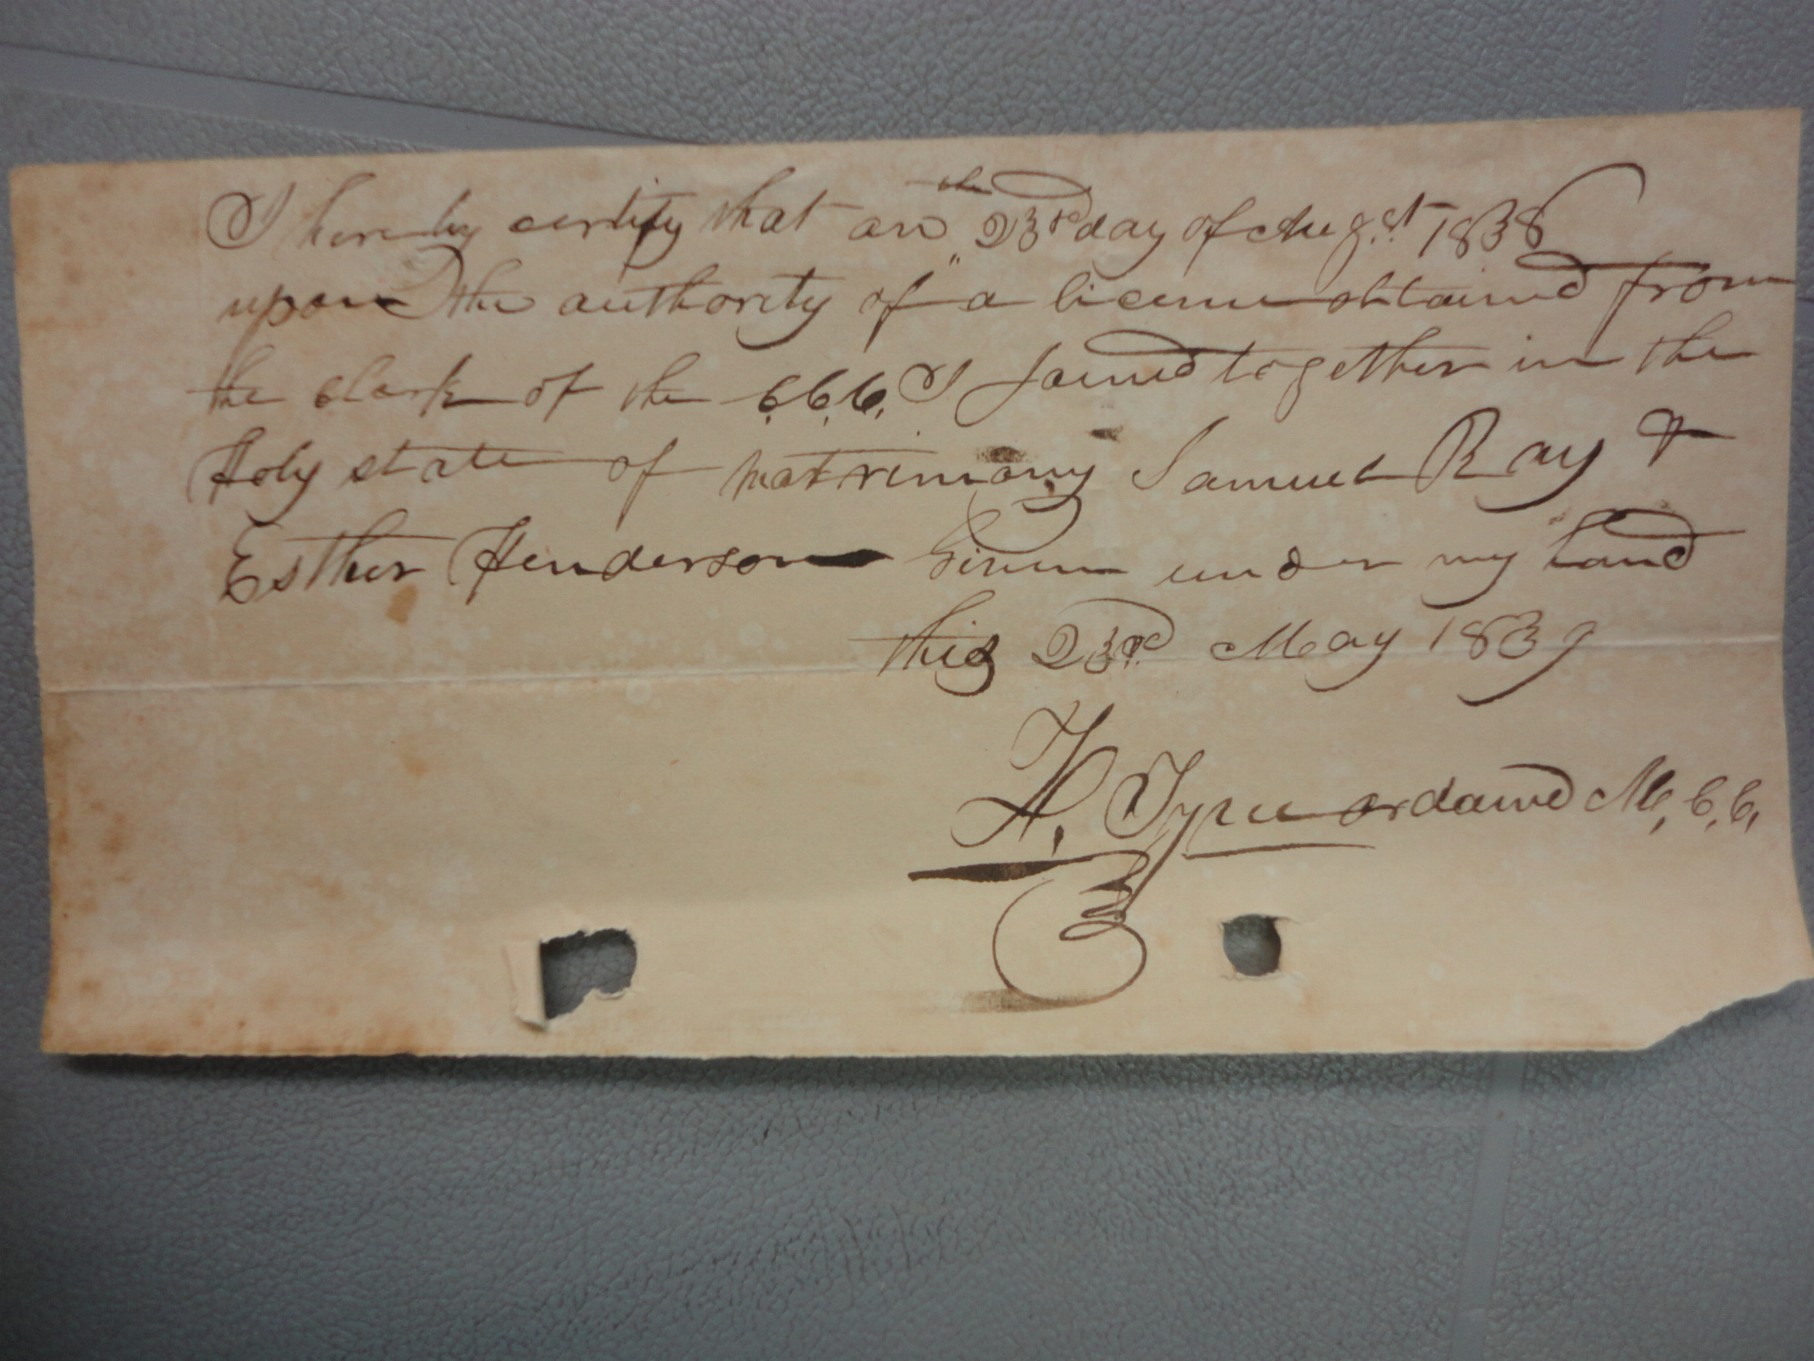 I hereby certify that on the 23rd day of Augst 1838
upon the authority of a licence obtained from
the Clerk of the C.C.C. I joined together in the
Holy state of matrimony Samuel Ray &
Esther Henderson Given under my hand
this 23rd May 1839
H. Tyree ordained M, C, C,